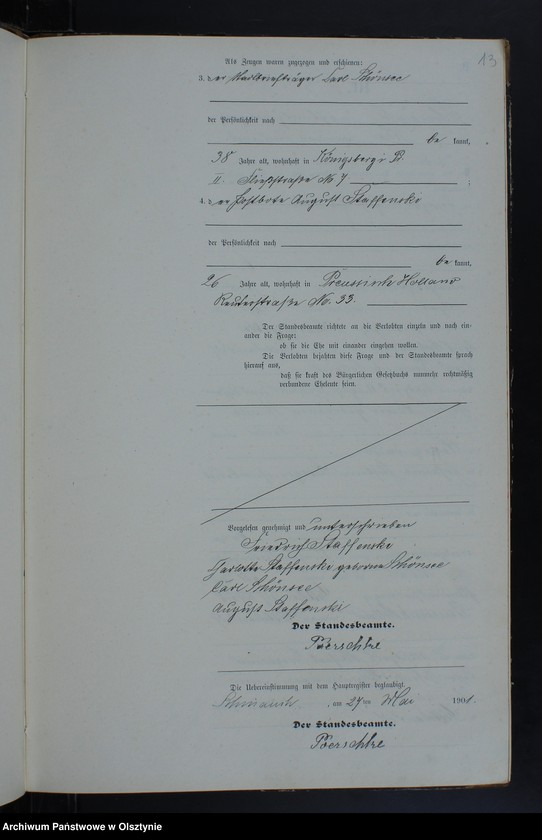 13
Als Zeugen waren zugezogen und erschienen:
3. der Carl Schönsee
der Persönlichkeit nach
be kannt,
38 Jahre alt, wohnhaft in Königsberg i. P.
II. Fließstraße No 7 ;
4. der Postbote August Staffenski
der Persönlichkeit nach
be kannt,
26 Jahre alt, wohnhaft in Preussisch Holland
Reuterstraße No. 33.
Der Standesbeamte richtete an die Verlobten einzeln und nach ein-
ander die Frage:
ob sie die Ehe mit einander eingehen wollen.
Die Verlobten bejahten diese Frage und der Standesbeamte sprach
hierauf aus,
daß sie kraft des Bürgerlichen Gesetzbuchs nunmehr rechtmäßig
verbundene Eheleute seien.
Vorgelesen genehmigt und unterschrieben
Friedrich Staffenski
Charlotte Staffenski geborene Schönsee
Carl Schönsee
August Staffenski
Der Standesbeamte.
Poerschke
Die Uebereinstimmung mit dem Hauptregister beglaubigt.
Schmauch, am 27ten Mai 1901.
Der Standesbeamte.
Poerschke
Archiwum Państwowe w Olsztynie